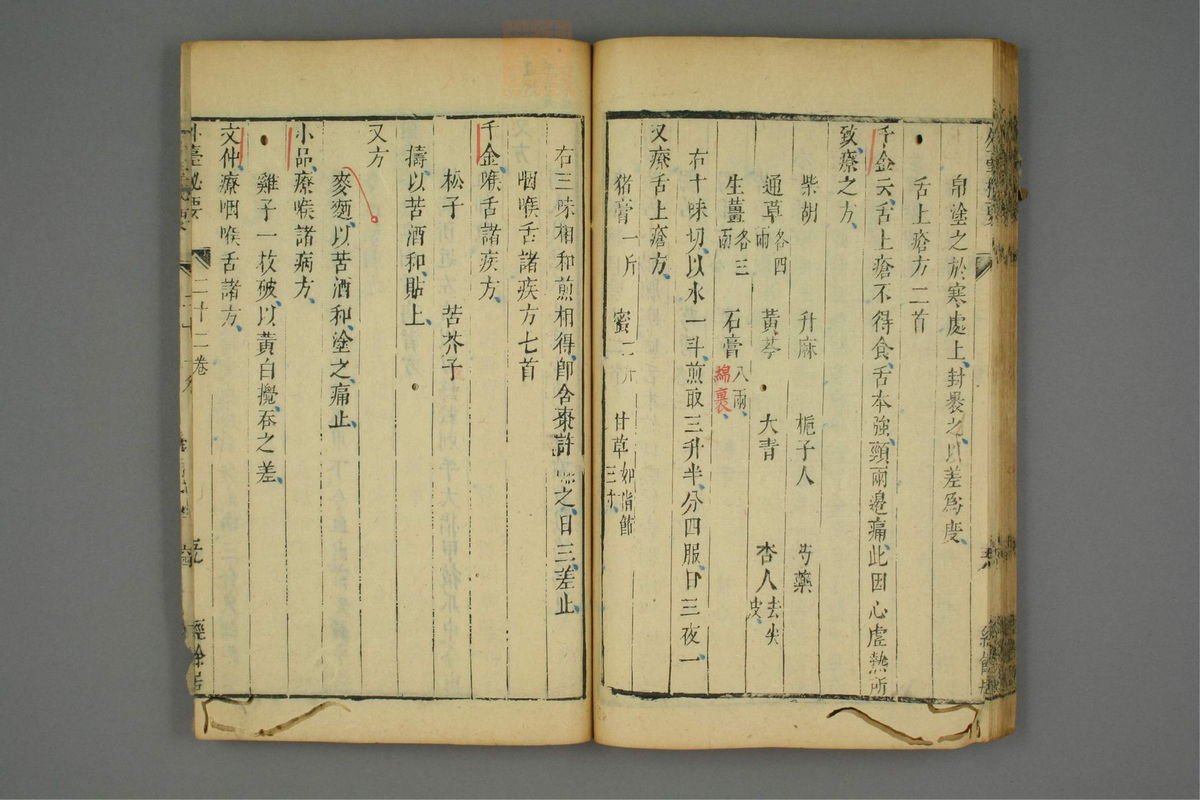 帛塗之於寒處上封裹之以差爲度
舌上瘡方二首
千金云舌上瘡不得食舌本強頸兩邊痛此因心虛熱所
致療之方
柴胡 升麻 梔子人 芍藥
通草各四兩 黃芩 大青 杏人去尖皮
生薑各三兩 石膏八兩綿裹
右十味切以水一斗煎取三升半分四服日三夜一
又療舌上瘡方
猪膏一斤 蜜二斤 甘草如指節三寸
右三味相和煎相得卽含棗許嚥之日三差止
咽喉舌諸疾方七首
千金喉舌諸疾方
松子 苦芥子
擣以苦酒和貼上
又方
麥麵以苦酒和塗之痛止
小品療喉諸病方
雞子一枚破以黃白攪吞之差
文仲療咽喉舌諸方
外臺秘要 二十二卷 經餘居